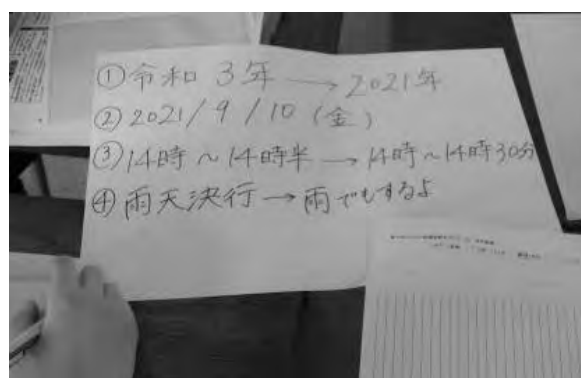 ①令和 3年 → 2021年
②2021/9/10 (金)
③14時～14時半→14時～14時30分
④雨天決行→雨でもするよ